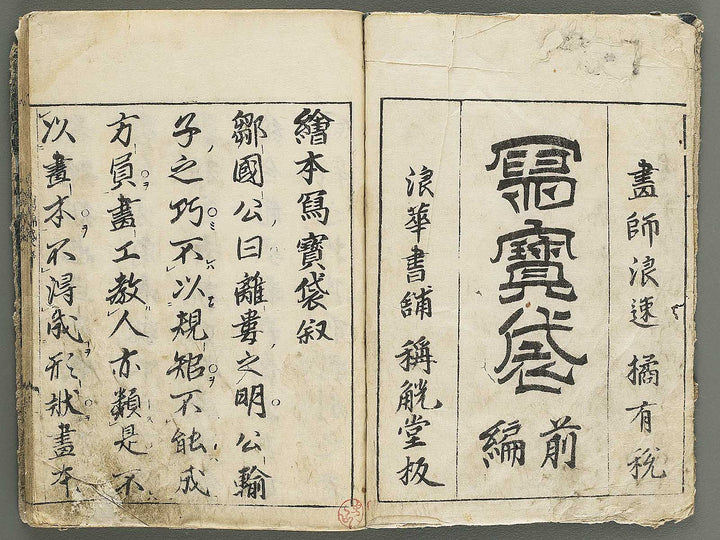 畫師浪速 橘有税
寫寶袋
前編
浪華書舖 稱觥堂板
繪本寫寶袋叙
鄒國公曰離婁之明公輸
子之巧不以規矩不能成
方員畫工教人亦類是不
以畫本不得成形状畫本